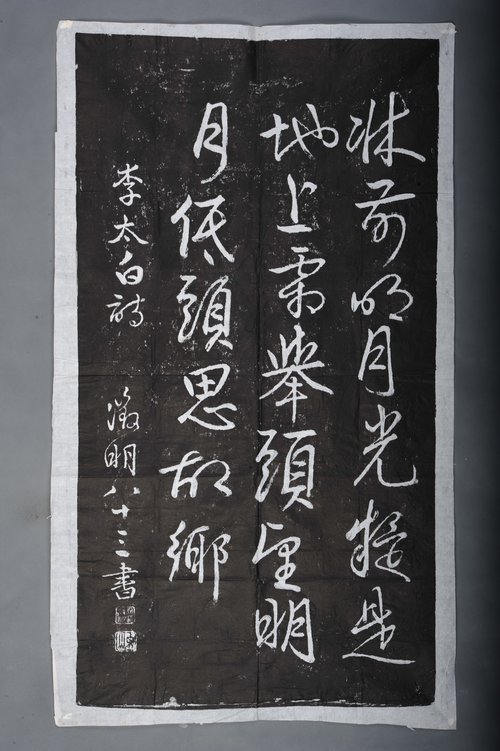 牀前明月光疑是
地上霜舉頭望明
月低頭思故鄉
李太白詩 徵明八十三書